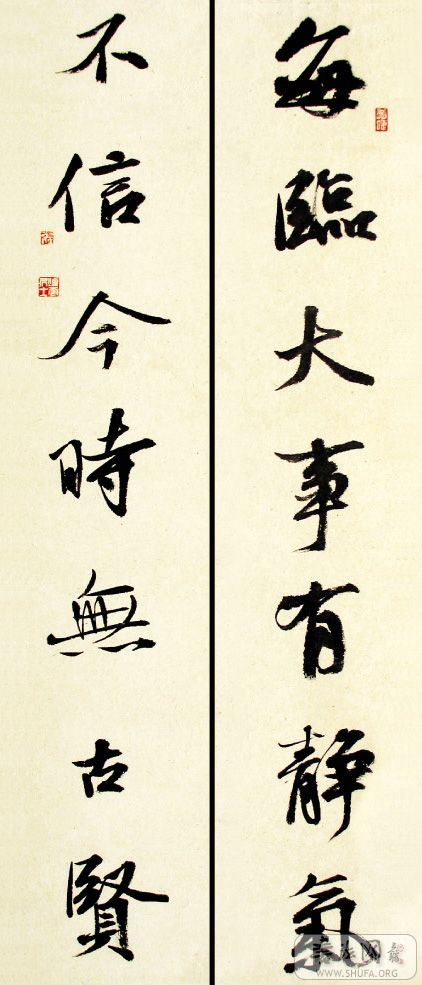 每臨大事有静氣
不信今時無古賢
WWW.SHUFA.ORG